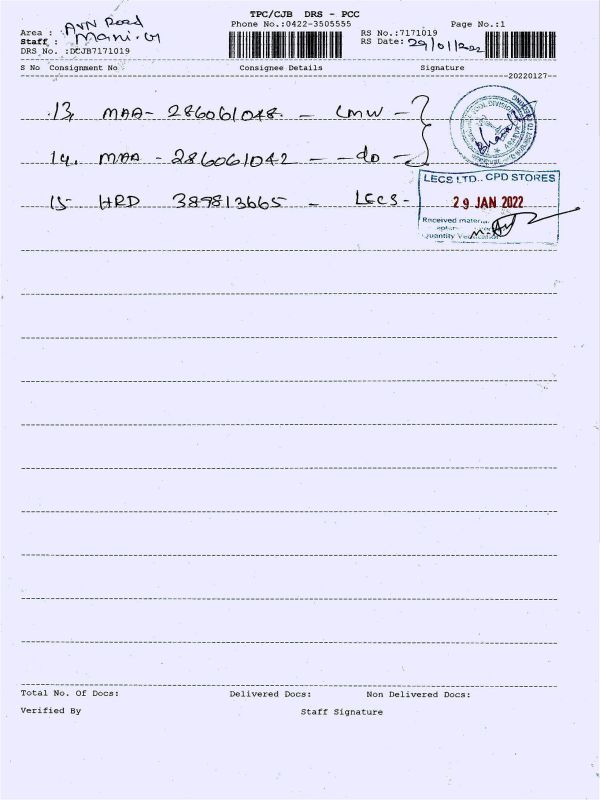 TPC/CJB DRS - PCC
Phone No.:0422-3505555 Page No.:1
Area : AVN Road
Staff : Mani. M
DRS No. :DCJB7171019
RS No.:7171019
RS Date: 29/01/2022
S No Consignment No Consignee Details Signature
20220127
13, MAA- 286061048. - LMW -
14, MAA - 286061042 - - do -
15- HRD 389813665 - LECS -
TOOL DIVISION
LECS LTD., CPD STORES
29 JAN 2022
Received
Quantity
Total No. Of Docs: Delivered Docs: Non Delivered Docs:
Verified By Staff Signature